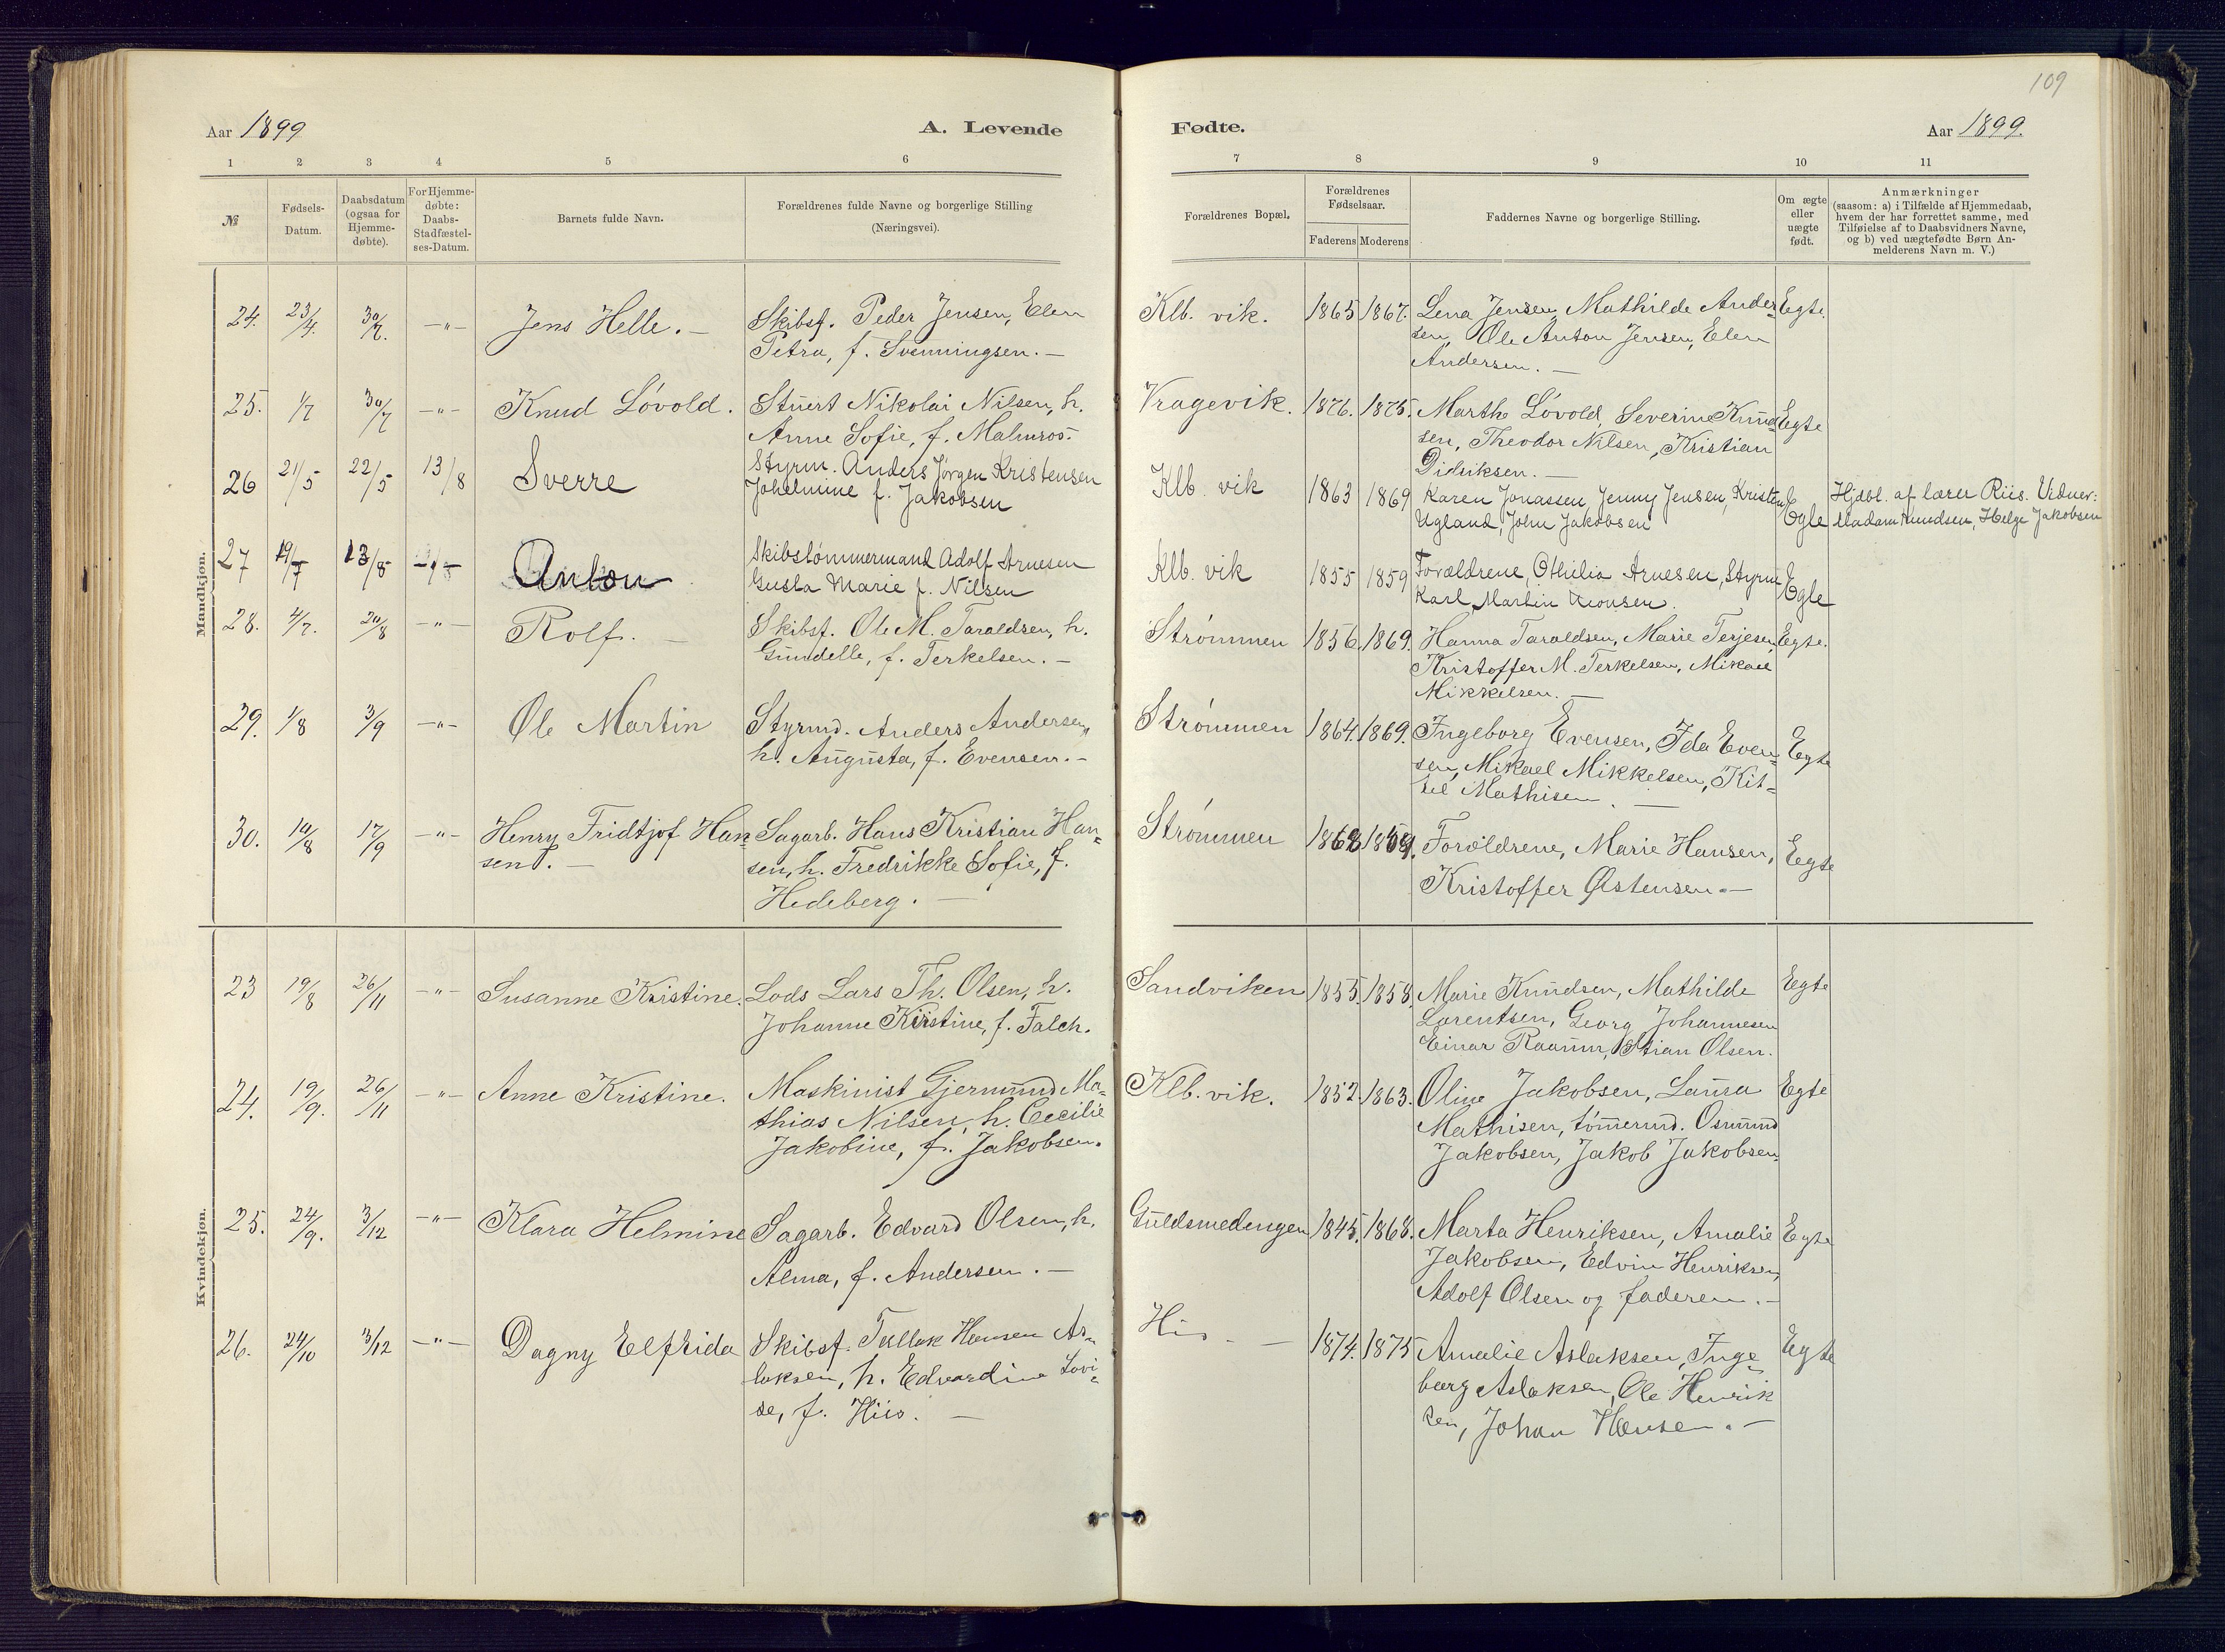 109
Aar 1899
A. Levende
Fødte.
Aar 1899.
1 2 3 4 5 6 7 8 9 10 11
№
Fødsels-
Datum.
Daabsdatum
(ogsaa for
Hjemme-
døbte).
For Hjemme-
døbte:
Daabs-
Stadfæstel-
ses-Datum.
Barnets fulde Navn.
Forældrenes fulde Navne og borgerlige Stilling
(Næringsvei).
Forældrenes Bopæl.
Forældrenes
Fødselsaar.
Faderens Moderens
Faddernes Navne og borgerlige Stilling.
Om ægte
eller
uægte
født.
Anmærkninger
(saasom: a) i Tilfælde af Hjemmedaab,
hvem der har forrettet samme, med
Tilføielse af to Daabsvidners Navne,
og b) ved uægtefødte Børn An-
melderens Navn m. V.)
Mandkjøn.
24. 23/4. 30/7. -"- Jens Helle. -
Skibsf. Peder Jensen, Elen
Petra, f. Svenningsen. -
Klb. vik. 1865 1867.
Lena Jensen, Mathilde Ander-
sen, Ole Anton Jensen, Elen
Andersen. -
Egte.
25. 1/7 30/7 -"- Knud Lóvold.
Stuert Nikolai Nilsen, h.
Anne Sofie, f. Malmros.
Vragevik. 1876. 1875.
Marthe Lóvold, Severine Knud-
sen, Theodor Nilsen, Kristian
Didriksen. -
Egte
26 21/5 22/5 13/8 Sverre
Styrm. Anders Jørgen Kristensen
Johelmine f. Jakobsen
Klb. vik 1863 1869
Karen Jonassen, Jenny Jensen, Kristen
Ugland, John Jakobsen
Egte
Hjdbt. af lærer Riis. Vidner:
Madam Knudsen, Helge Jakobsen
27 19/7 13/8 Anton
Skibstómmermand Adolf Arnesen
Gusta Marie f. Nilsen
Klb. vik 1855 1859
Forældrene, Othilia Arnesen, Styrm
Karl Martin
Egte
28. 4/7. 20/8 -"- Rolf. -
Skibsf. Ole M. Taraldsen, h.
Gundelle, f. Terkelsen. -
Strómmen 1856. 1869.
Hanna Taraldsen, Marie Terjesen,
Kristoffer M. Terkelsen, Mikael
Mikkelsen. -
Egte.
29. 1/8 3/9 -"- Ole Martin
Styrmd. Anders Andersen,
h. Augusta, f. Evensen. -
Strómmen 1864. 1869.
Ingeborg Evensen, Ida Even-
sen, Mikael Mikkelsen, Kit-
til Mathisen. -
Egte
30. 10/8 17/9 -"- Henry Fridtjof Han-
sen. -
Sagarb. Hans Kristian Han-
sen, h. Fredrikke Sofie, f.
Hedeberg. -
Strómmen
Forældrene, Marie Hansen,
Kristoffer Østensen. -
Egte
Kvindekjøn.
23 19/8 26/11 -"- Susanne Kristine.
Lods Lars Th. Olsen, h.
Johanne Kirstine, f. Falch.
Sandviken 1855. 1858.
Marie Knudsen, Mathilde
Lorentsen, Georg Johannesen
Einar Raaum, Stian Olsen.
Egte
24. 19/9. 26/11 -"- Anne Kristine.
Maskinist Gjermund Ma-
thias Nilsen, h. Cecilie
Jakobine, f. Jakobsen.
Klb. vik. 1852. 1863.
Oline Jakobsen, Laura
Mathisen, tómermd. Osmund
Jakobsen, Jakob Jakobsen.
Egte
25. 24/9. 3/12 -"- Klara Helmine
Sagarb. Edvard Olsen, h.
Alma, f. Andersen. -
Guldsmedengen 1845. 1868.
Marta Henriksen, Amalie
Jakobsen, Edvin Henriksen,
Adolf Olsen og faderen. -
Egte
26. 24/10 3/12 -"- Dagny Elfrida
Skibsf. Tallak Hansen As-
laksen, h. Edvardine Lovi-
se, f. Hiis. -
His - - 1874. 1875
Amalie Aslaksen, Inge-
borg Aslaksen, Ole Henrik
sen, Johan Hansen. -
Egte